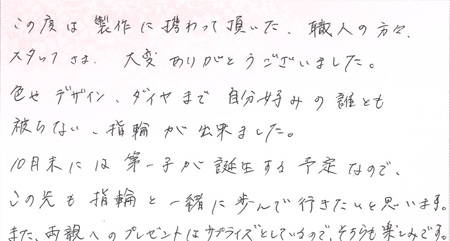 この度は製作に携わって頂いた、職人の方々、
スタッフさま、大変ありがとうございました。
色やデザイン、ダイヤまで自分好みの誰とも
被らない、指輪が出来ました。
10月末には第一子が誕生する予定なので、
この先も指輪と一緒に歩んで行きたいと思います。
また、両親へのプレゼントはサプライズとしているので、そちらも楽しみです。